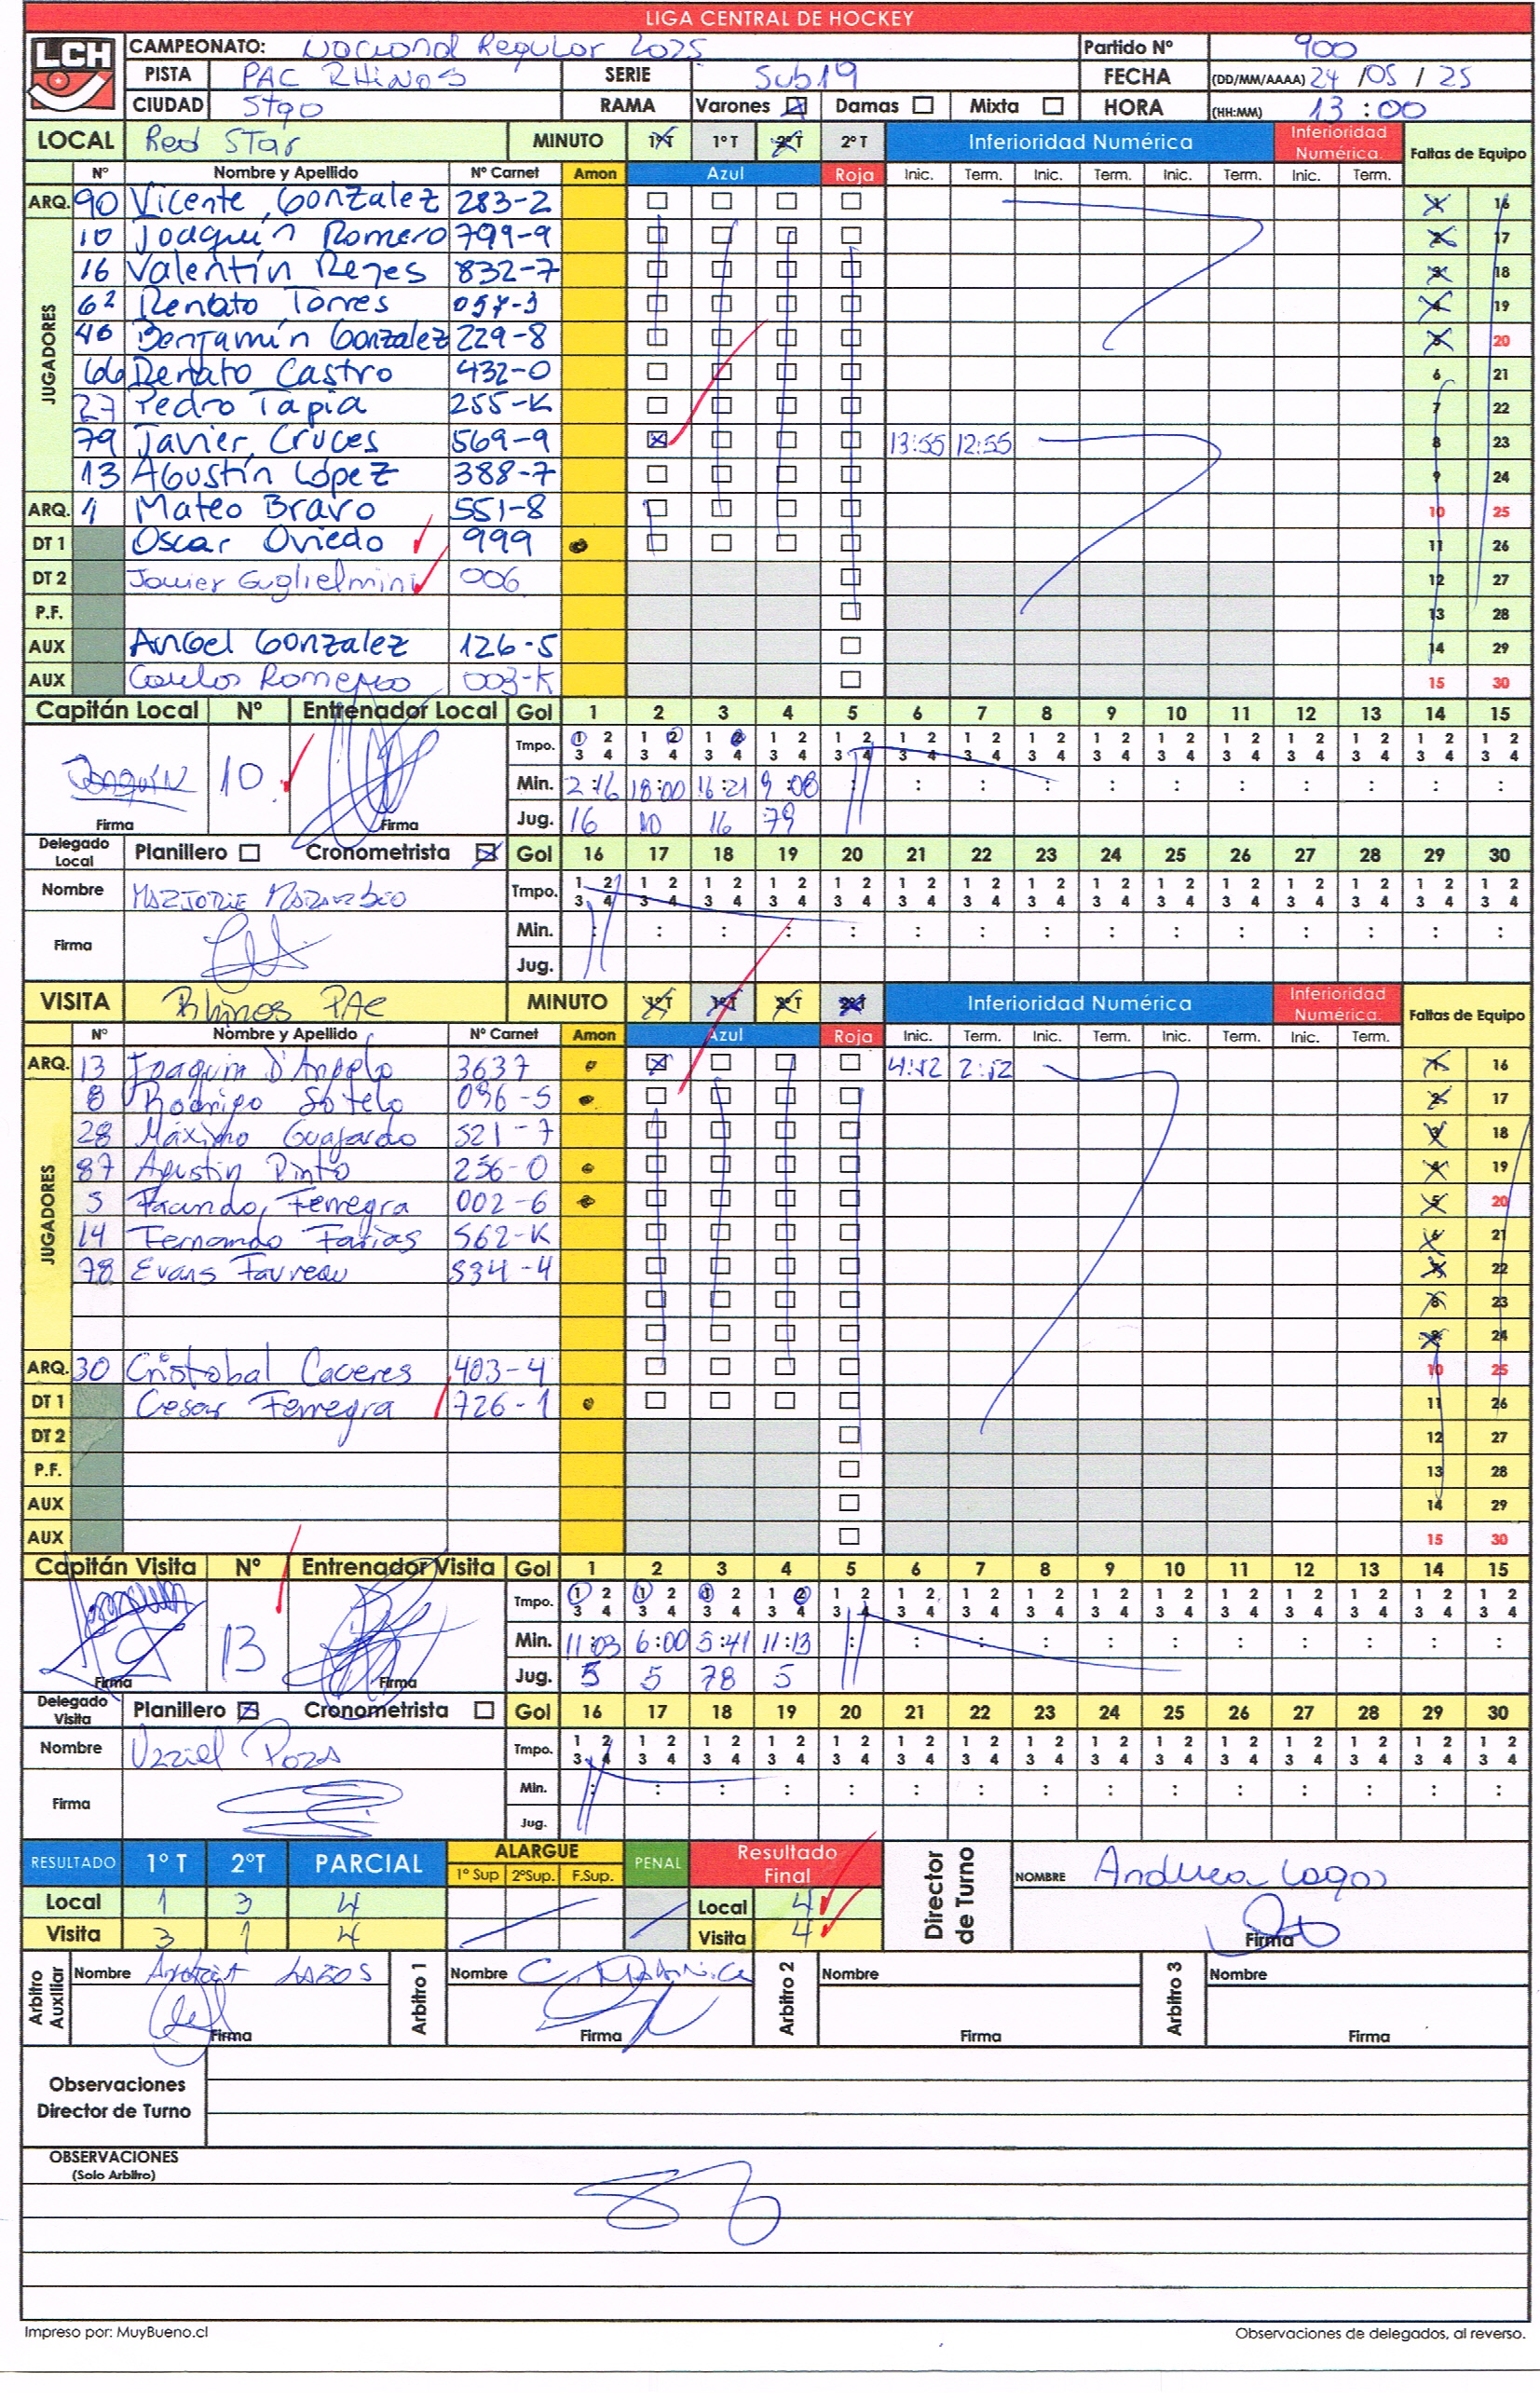 LIGA CENTRAL DE HOCKEY
LCH
CAMPEONATO: Nacional Regular 2025 Partido Nº 900
PISTA PAC RHINOS SERIE Sub19 FECHA (DD/MM/AAAA) 24 /05 / 25
CIUDAD Stgo RAMA Varones Damas Mixta HORA (HH:MM) 13 :00
LOCAL Red Star MINUTO 1º T 1º T 2º T 2º T Inferioridad Numérica Inferioridad Numérica. Faltas de Equipo
Nº Nombre y Apellido Nº Carnet Amon Azul Roja Inic. Term. Inic. Term. Inic. Term. Inic. Term.
ARQ. 90 Vicente Gonzalez 283-2 1 16
JUGADORES
10 Joaquín Romero 799-9 2 17
16 Valentín Reyes 832-7 3 18
62 Renato Torres 057-3 4 19
46 Benjamín Gonzalez 229-8 5 20
66 Renato Castro 432-0 6 21
27 Pedro Tapia 255-K 7 22
79 Javier Cruces 569-9 13:55 12:55 8 23
13 Agustín López 388-7 9 24
ARQ. 1 Mateo Bravo 551-8 10 25
DT 1 Oscar Oviedo 999 11 26
DT 2 Javier Guglielmini 006 12 27
P.F. 13 28
AUX Angel Gonzalez 126-5 14 29
AUX Carlos Romero 003-K 15 30
Capitán Local Nº Entrenador Local Gol 1 2 3 4 5 6 7 8 9 10 11 12 13 14 15
Tmpo. 1 2 1 2 1 2 1 2 1 2 1 2 1 2 1 2 1 2 1 2 1 2 1 2 1 2 1 2 1 2
3 4 3 4 3 4 3 4 3 4 3 4 3 4 3 4 3 4 3 4 3 4 3 4 3 4 3 4 3 4
Joaquín 10 Min. 2:16 18:00 16:21 9:08 : : : : : : : : : : :
Firma Firma Jug. 16 10 16 79
Delegado Local Planillero Cronometrista Gol 16 17 18 19 20 21 22 23 24 25 26 27 28 29 30
Nombre MARJORIE Tmpo. 1 2 1 2 1 2 1 2 1 2 1 2 1 2 1 2 1 2 1 2 1 2 1 2 1 2 1 2 1 2
3 4 3 4 3 4 3 4 3 4 3 4 3 4 3 4 3 4 3 4 3 4 3 4 3 4 3 4 3 4
Firma Min. : : : : : : : : : : : : : : :
Jug.
VISITA Rhinos PAC MINUTO 1º T 1º T 2º T 2º T Inferioridad Numérica Inferioridad Numérica. Faltas de Equipo
Nº Nombre y Apellido Nº Carnet Amon Azul Roja Inic. Term. Inic. Term. Inic. Term. Inic. Term.
ARQ. 13 Joaquin D'Angelo 3637 4:12 2:12 1 16
JUGADORES
8 Rodrigo Sotelo 096-5 2 17
28 Máximo Guajardo 521-7 3 18
87 Agustin Pinto 256-0 4 19
5 Facundo Ferregra 002-6 5 20
14 Fernando Farias 562-K 6 21
78 Evans Favreau 534-4 7 22
8 23
9 24
ARQ. 30 Cristobal Caceres 403-4 10 25
DT 1 Cesar Ferregra 726-1 11 26
DT 2 12 27
P.F. 13 28
AUX 14 29
AUX 15 30
Capitán Visita Nº Entrenador Visita Gol 1 2 3 4 5 6 7 8 9 10 11 12 13 14 15
Tmpo. 1 2 1 2 1 2 1 2 1 2 1 2 1 2 1 2 1 2 1 2 1 2 1 2 1 2 1 2 1 2
3 4 3 4 3 4 3 4 3 4 3 4 3 4 3 4 3 4 3 4 3 4 3 4 3 4 3 4 3 4
13 Min. 11:03 6:00 5:41 11:13 : : : : : : : : : : :
Firma Firma Jug. 5 5 78 5
Delegado Visita Planillero Cronometrista Gol 16 17 18 19 20 21 22 23 24 25 26 27 28 29 30
Nombre Uzziel Poza Tmpo. 1 2 1 2 1 2 1 2 1 2 1 2 1 2 1 2 1 2 1 2 1 2 1 2 1 2 1 2 1 2
3 4 3 4 3 4 3 4 3 4 3 4 3 4 3 4 3 4 3 4 3 4 3 4 3 4 3 4 3 4
Firma Min. : : : : : : : : : : : : : : :
Jug.
RESULTADO 1º T 2ºT PARCIAL ALARGUE 1º Sup 2ºSup. F.Sup. PENAL Resultado Final Director de Turno NOMBRE Andrea Lagos
Local 1 3 4 Local 4
Visita 3 1 4 Visita 4 Firma
Arbitro Auxiliar Nombre Andrea Lagos Firma Arbitro 1 Nombre C. Firma Arbitro 2 Nombre Firma Arbitro 3 Nombre Firma
Observaciones
Director de Turno
OBSERVACIONES
(Solo Arbitro)
Impreso por: MuyBueno.cl Observaciones de delegados, al reverso.